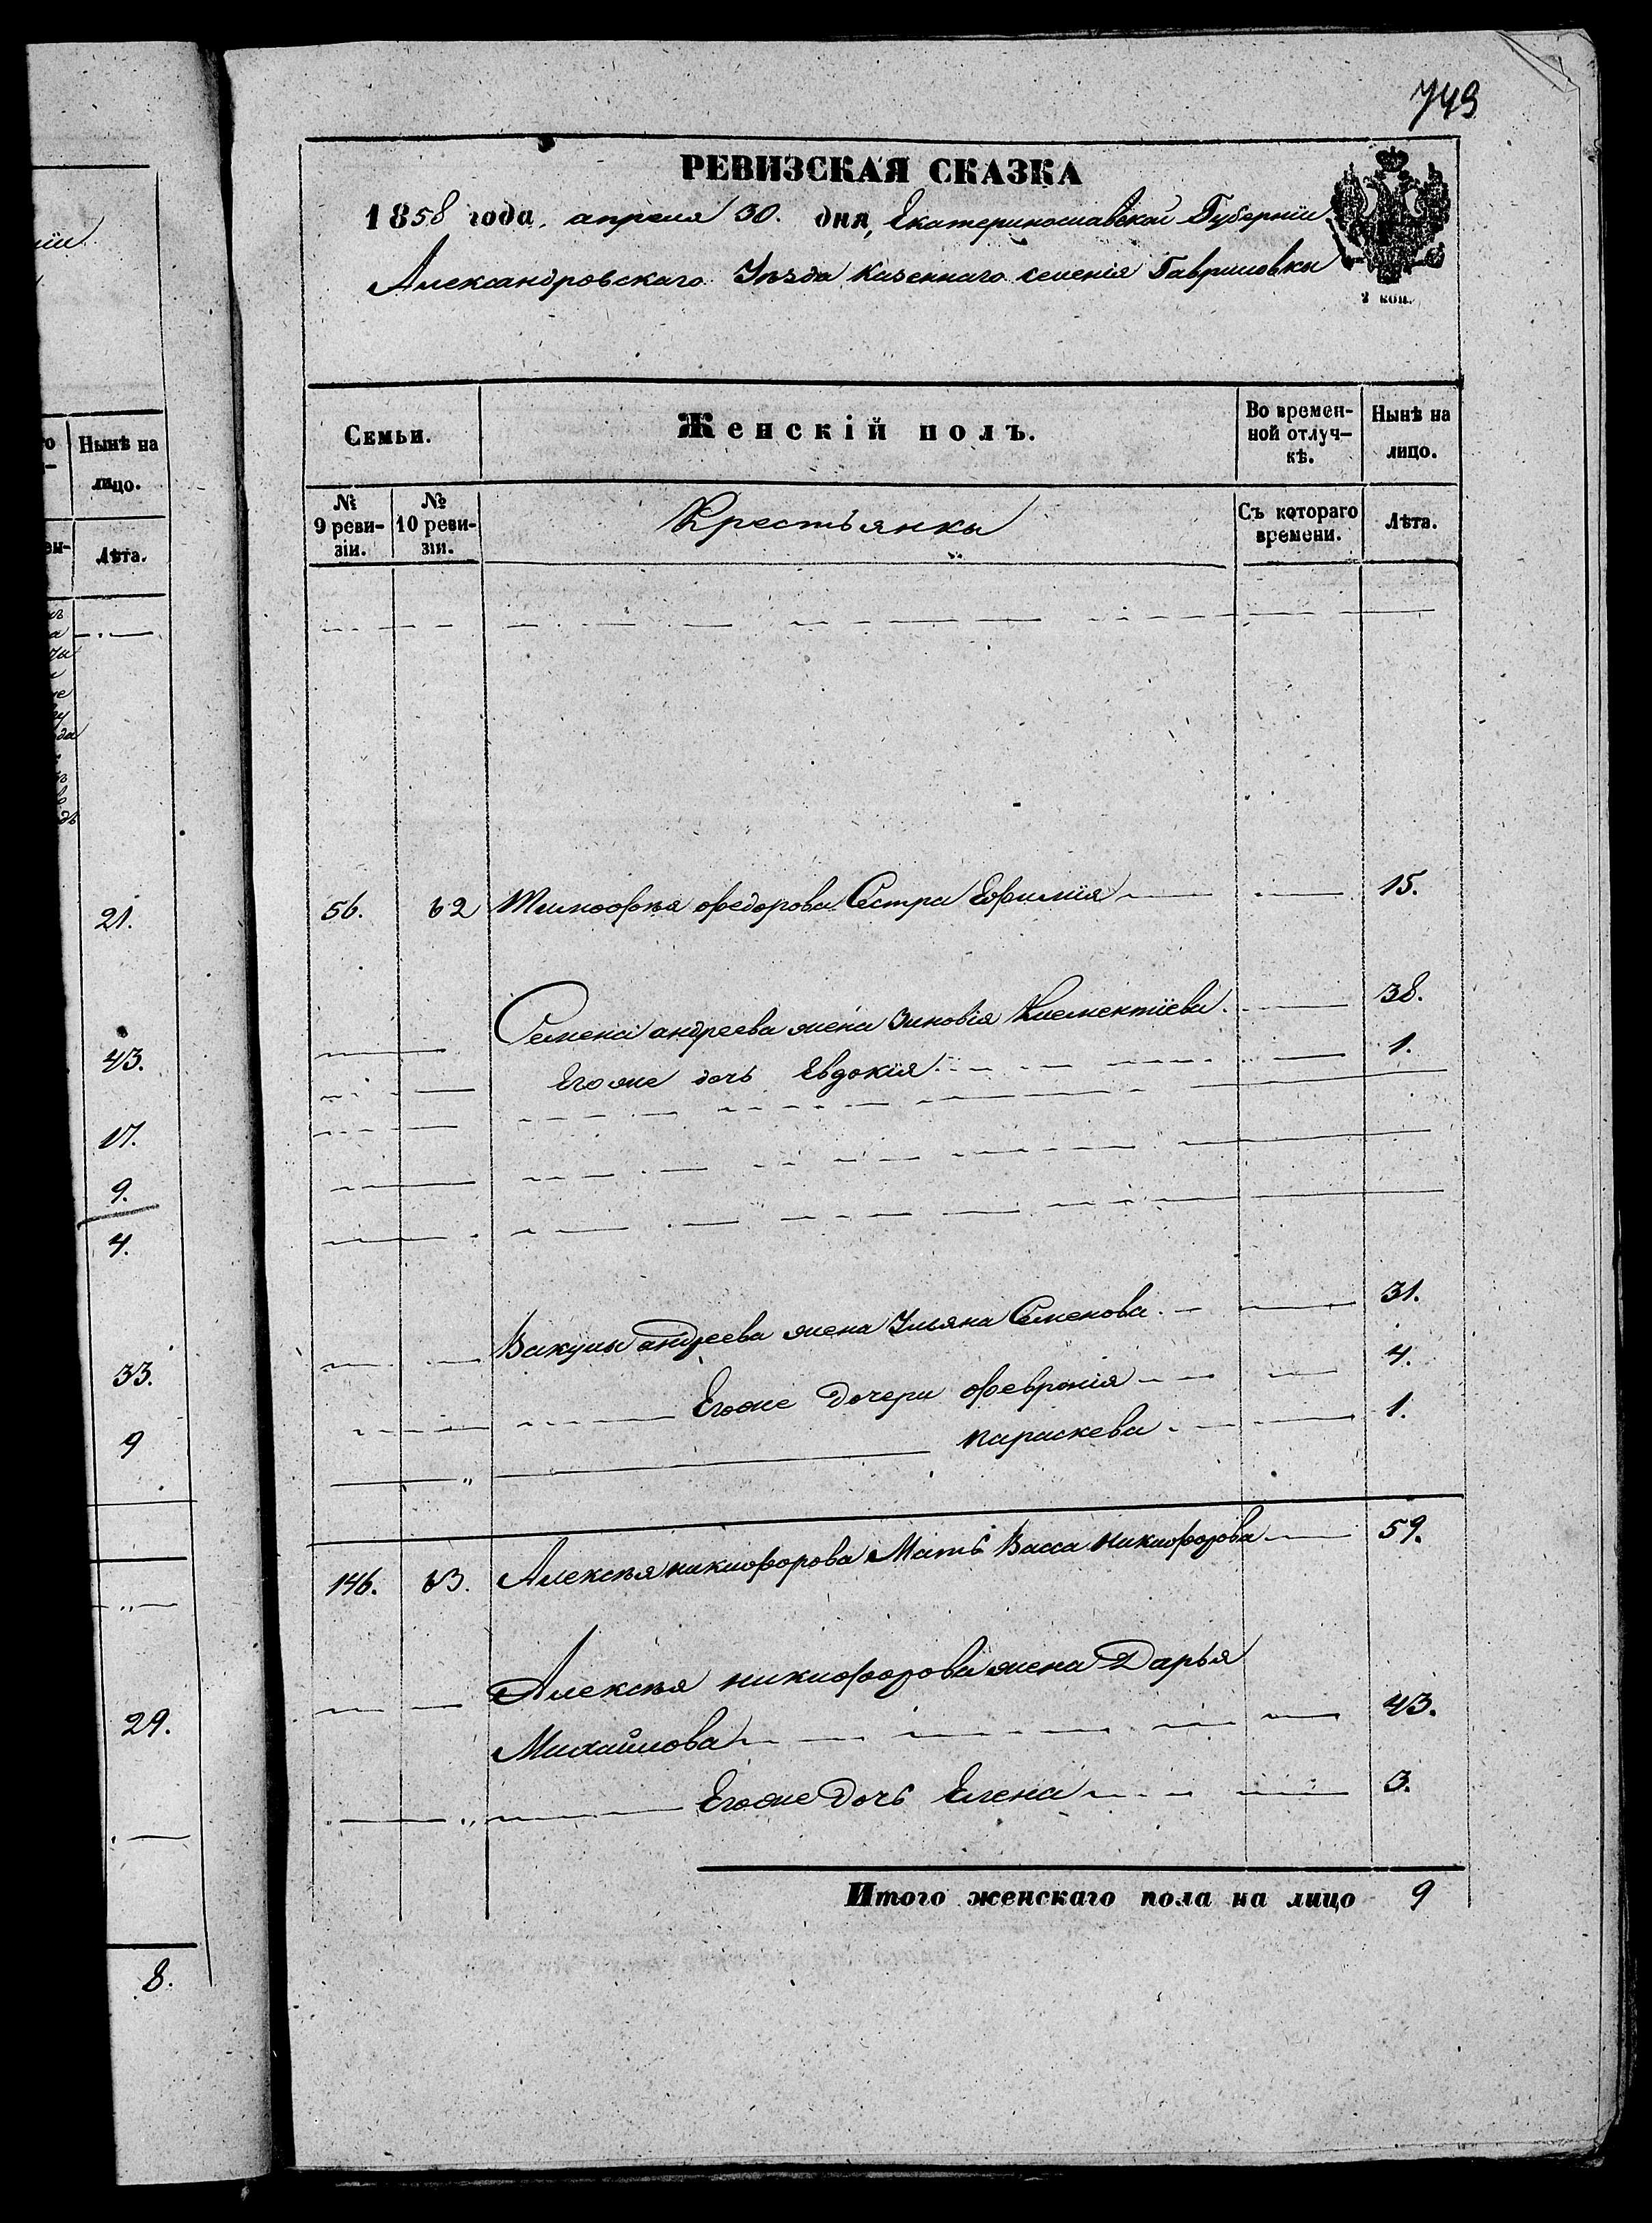 749
РЕВИЗСКАЯ СКАЗКА
1858 года, апреля 30. дня, Екатеринославской Губерніи
Александровскаго Уѣзда Казеннаго селенія Гавриловки
2 коп.
Семьи. Женскій полъ. Во времен- Нынѣ на
ной отлуч- лицо.
кѣ.
№ 9 реви- зіи. № 10 реви- зіи. Крестьянки Съ котораго времени. Лѣта.
56. 62 Тимофѣя Федорова Сестра Евфимія 15.
Семена андреева жена Зиновія Клементіева. 38.
Его же дочь Евдокія 1.
Вакулы андреева жена Ульяна Семенова. 31.
Егоже Дочери Февронія 4.
Параскева 1.
146. 63. Алексѣя никифорова Мать Васса Никифорова 59.
Алексѣя никифорова жена Дарья
Михайлова 43.
Егоже Дочь Елена 3.
Итого женскаго пола на лицо 9
Нынѣ на
лицо.
Лѣта.
21.
43.
17.
9.
4.
33.
9
29.
8.